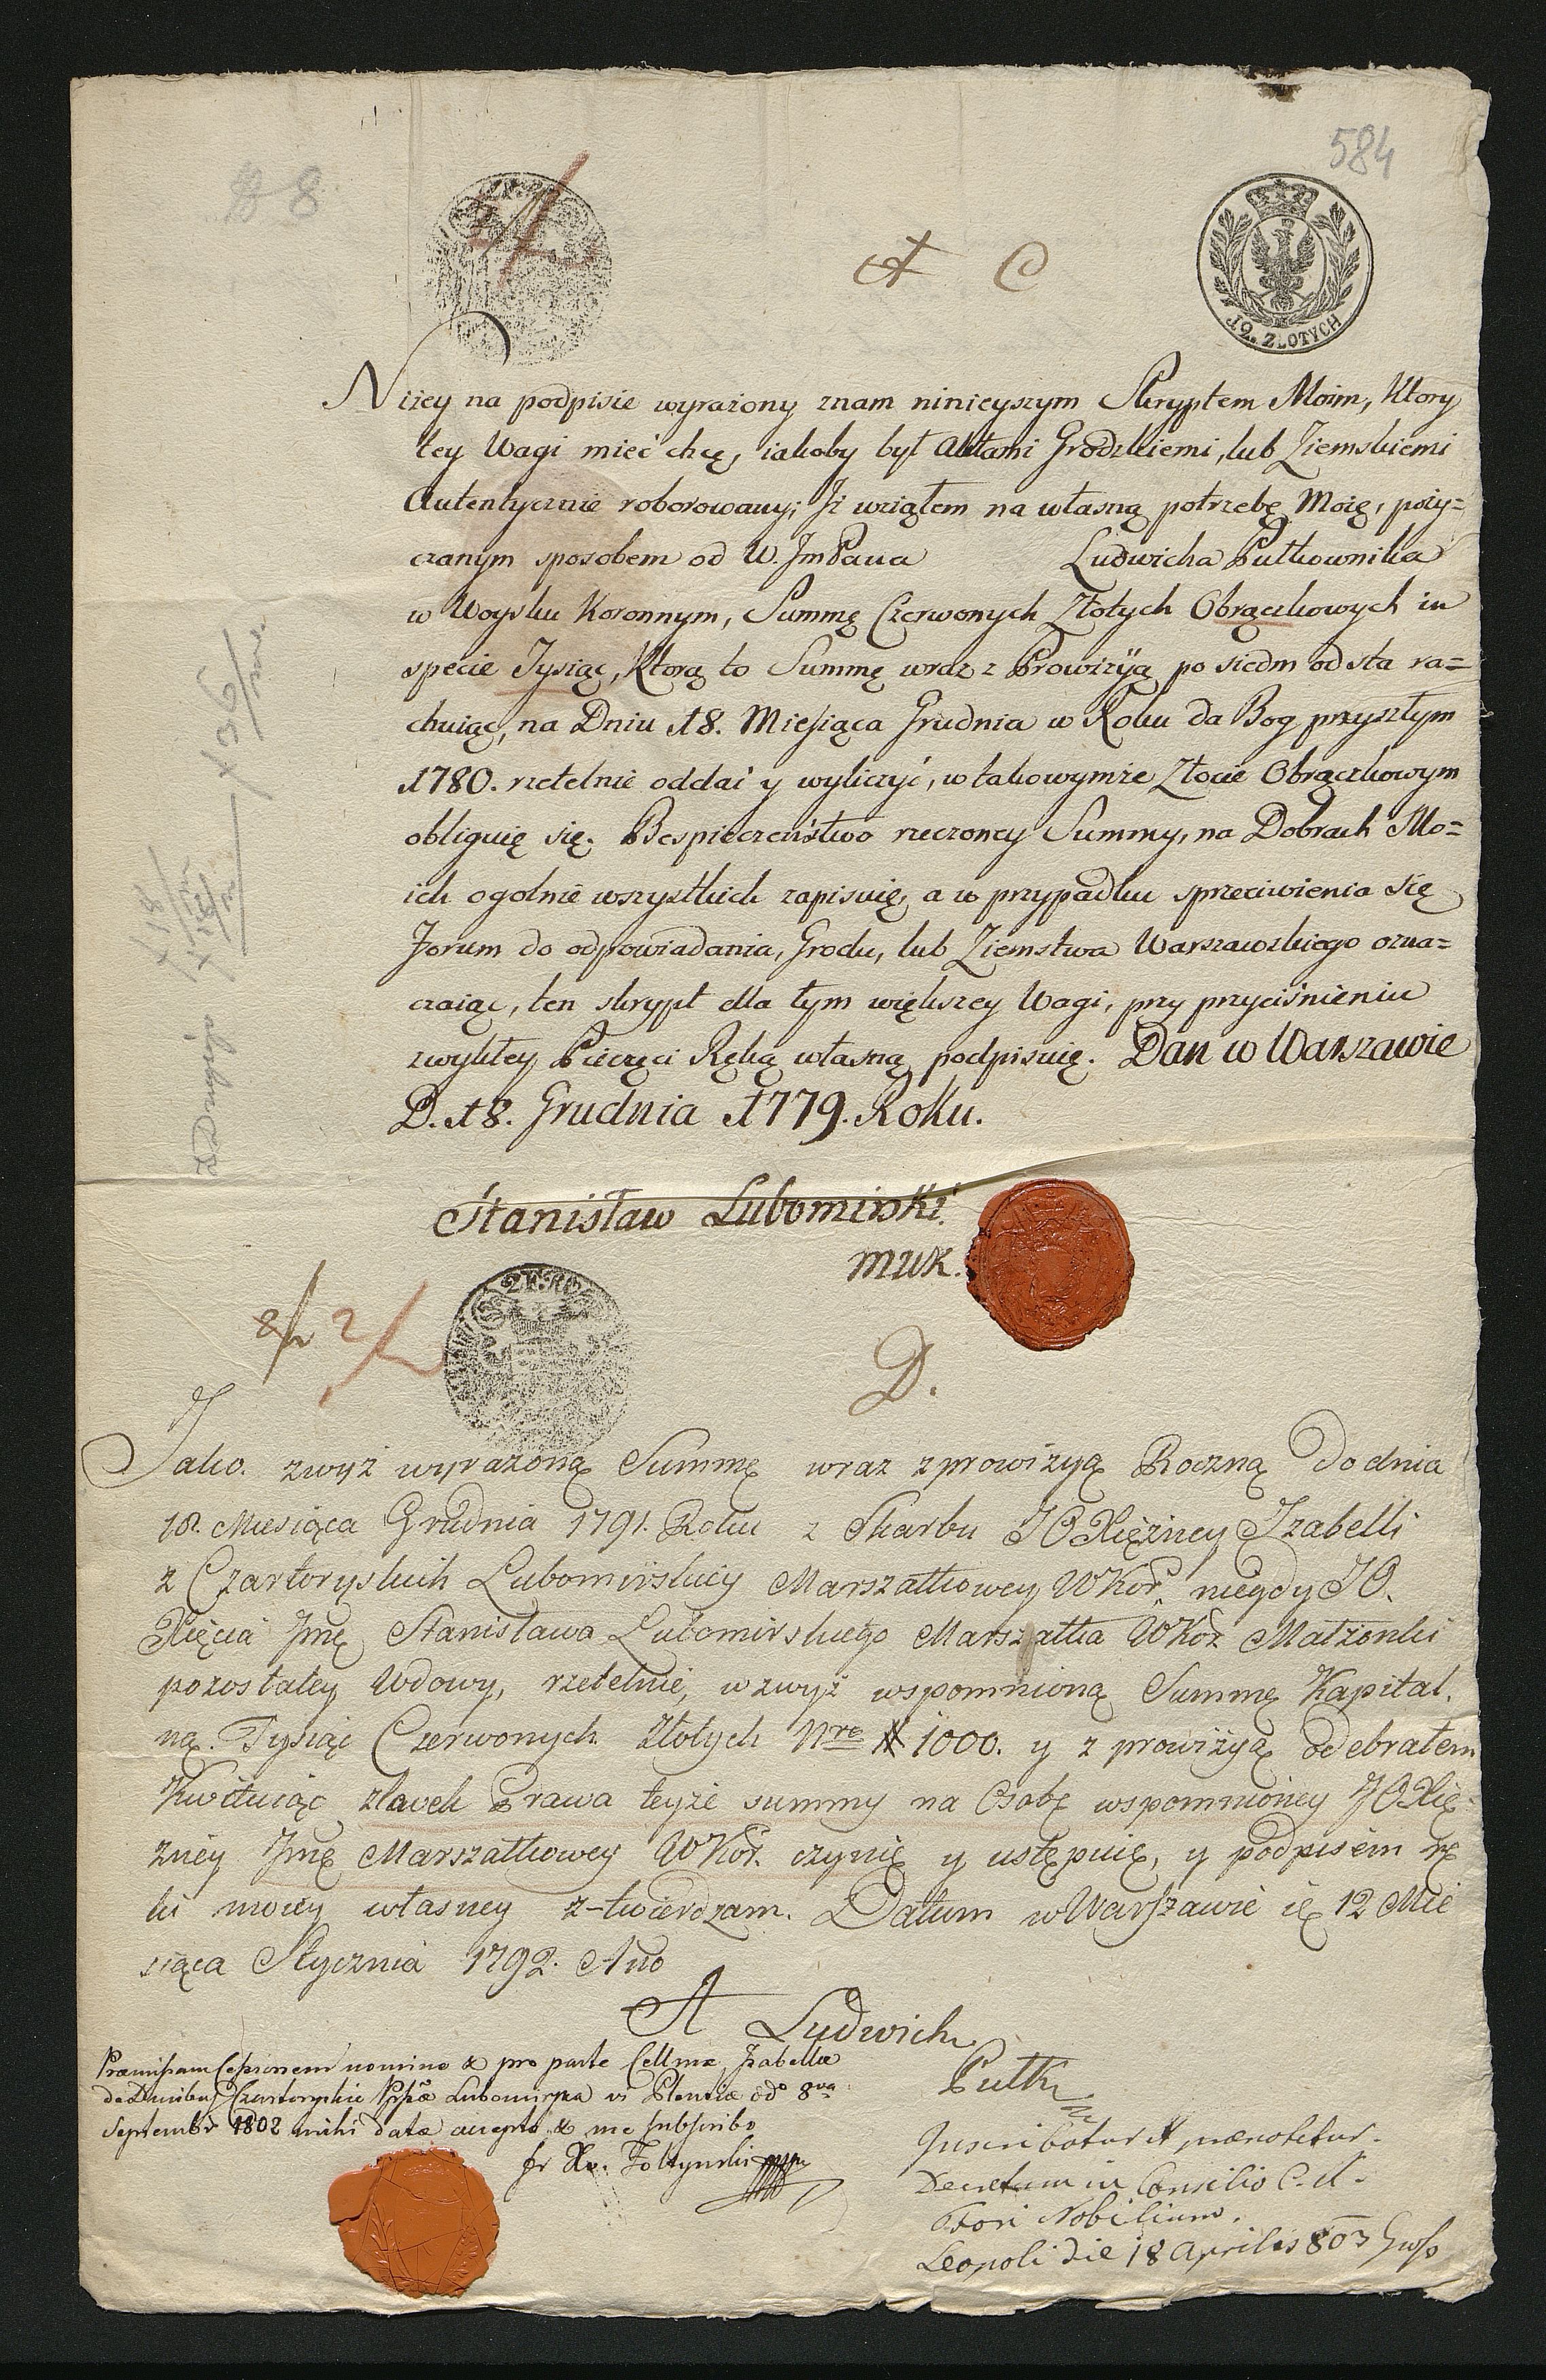 584
8
A C
12. ZŁOTYCH
Niżey na podpisie wyrażony znam ninieyszym Skryptem Moim, Ktory
tey Wagi mieć chcę, iakoby był Aktami Grodzkiemi, lub Ziemskiemi
Autentycznie roborowany; Iż wziąłem na własną potrzebę Moię, poży=
czanym sposobem od W. Jm Pana Ludwicha Pułkownika
w Woysku Koronnym, Summę Czerwonych Złotych Obrączkowych in
specie Tysiąc, Ktorą to Summę wraz z Prowizyą po siedm od sta ra=
chuiąc, na Dniu 18. Miesiąca Grudnia w Roku da Bog przyszłym
1780. rzetelnie oddać y wyliczyć, w takowymże Złocie Obrączkowym
obliguię się. Bespieczeństwo rzeczoney Summy, na Dobrach Mo=
ich ogolnie wszystkich zapisuię, a w przypadku sprzeciwienia się
Forum do odpowiadania, Grodu, lub Ziemstwa Warszawskiego ozna=
czaiąc, ten skrypt dla tym większey Wagi, przy przyciśnieniu
zwykłey Pieczęci Ręką własną podpisuię. Dan w Warszawie
D. 18. Grudnia 1779. Roku.
Stanisław Lubomirski
mwk.
2
D.
Jako zwyż wyrażoną Summę wraz z prowizyą Roczną do dnia
18. Miesiąca Grudnia 1791. Roku z Skarbu JO Xiężney Izabelli
z Czartoryskich Lubomirskiey Marszałkowey WKor. niegdy JO.
Xięcia Jmę Stanisława Lubomirskiego Marszałka WKor Małżonki
pozostałey Wdowy, rzetelnie, wzwyż wspomnioną Summę Kapital.
ną. Tysiąc Czerwonych Złotych Nro # 1000. y z prowizyą odebrałem
Kwituiąc zlavek Prawa teyże summy na Osobę wspomnioney JO Xię-
żney Jmę Marszałkowey WKor. czynię y ustępuię, y podpisem rę
ki moiey własney z-twierdzam. Datum w Warszawie ię 12 Mie
siąca Stycznia 1792. Ano
A Ludwich
Pułk
Præmissam Cessionem nomine & pro parte Cellmæ Izabellæ
de Ducibus Czartoryskie Ppssæ Lubomirska vi Plentiæ ddo 8va
Septembr 1802 mihi datæ accepto & me subscribo
Inscribatur & prænotetur.
Decretum in Consilio C. R.
Fori Nobilium.
Leopoli die 18 Aprilis 803